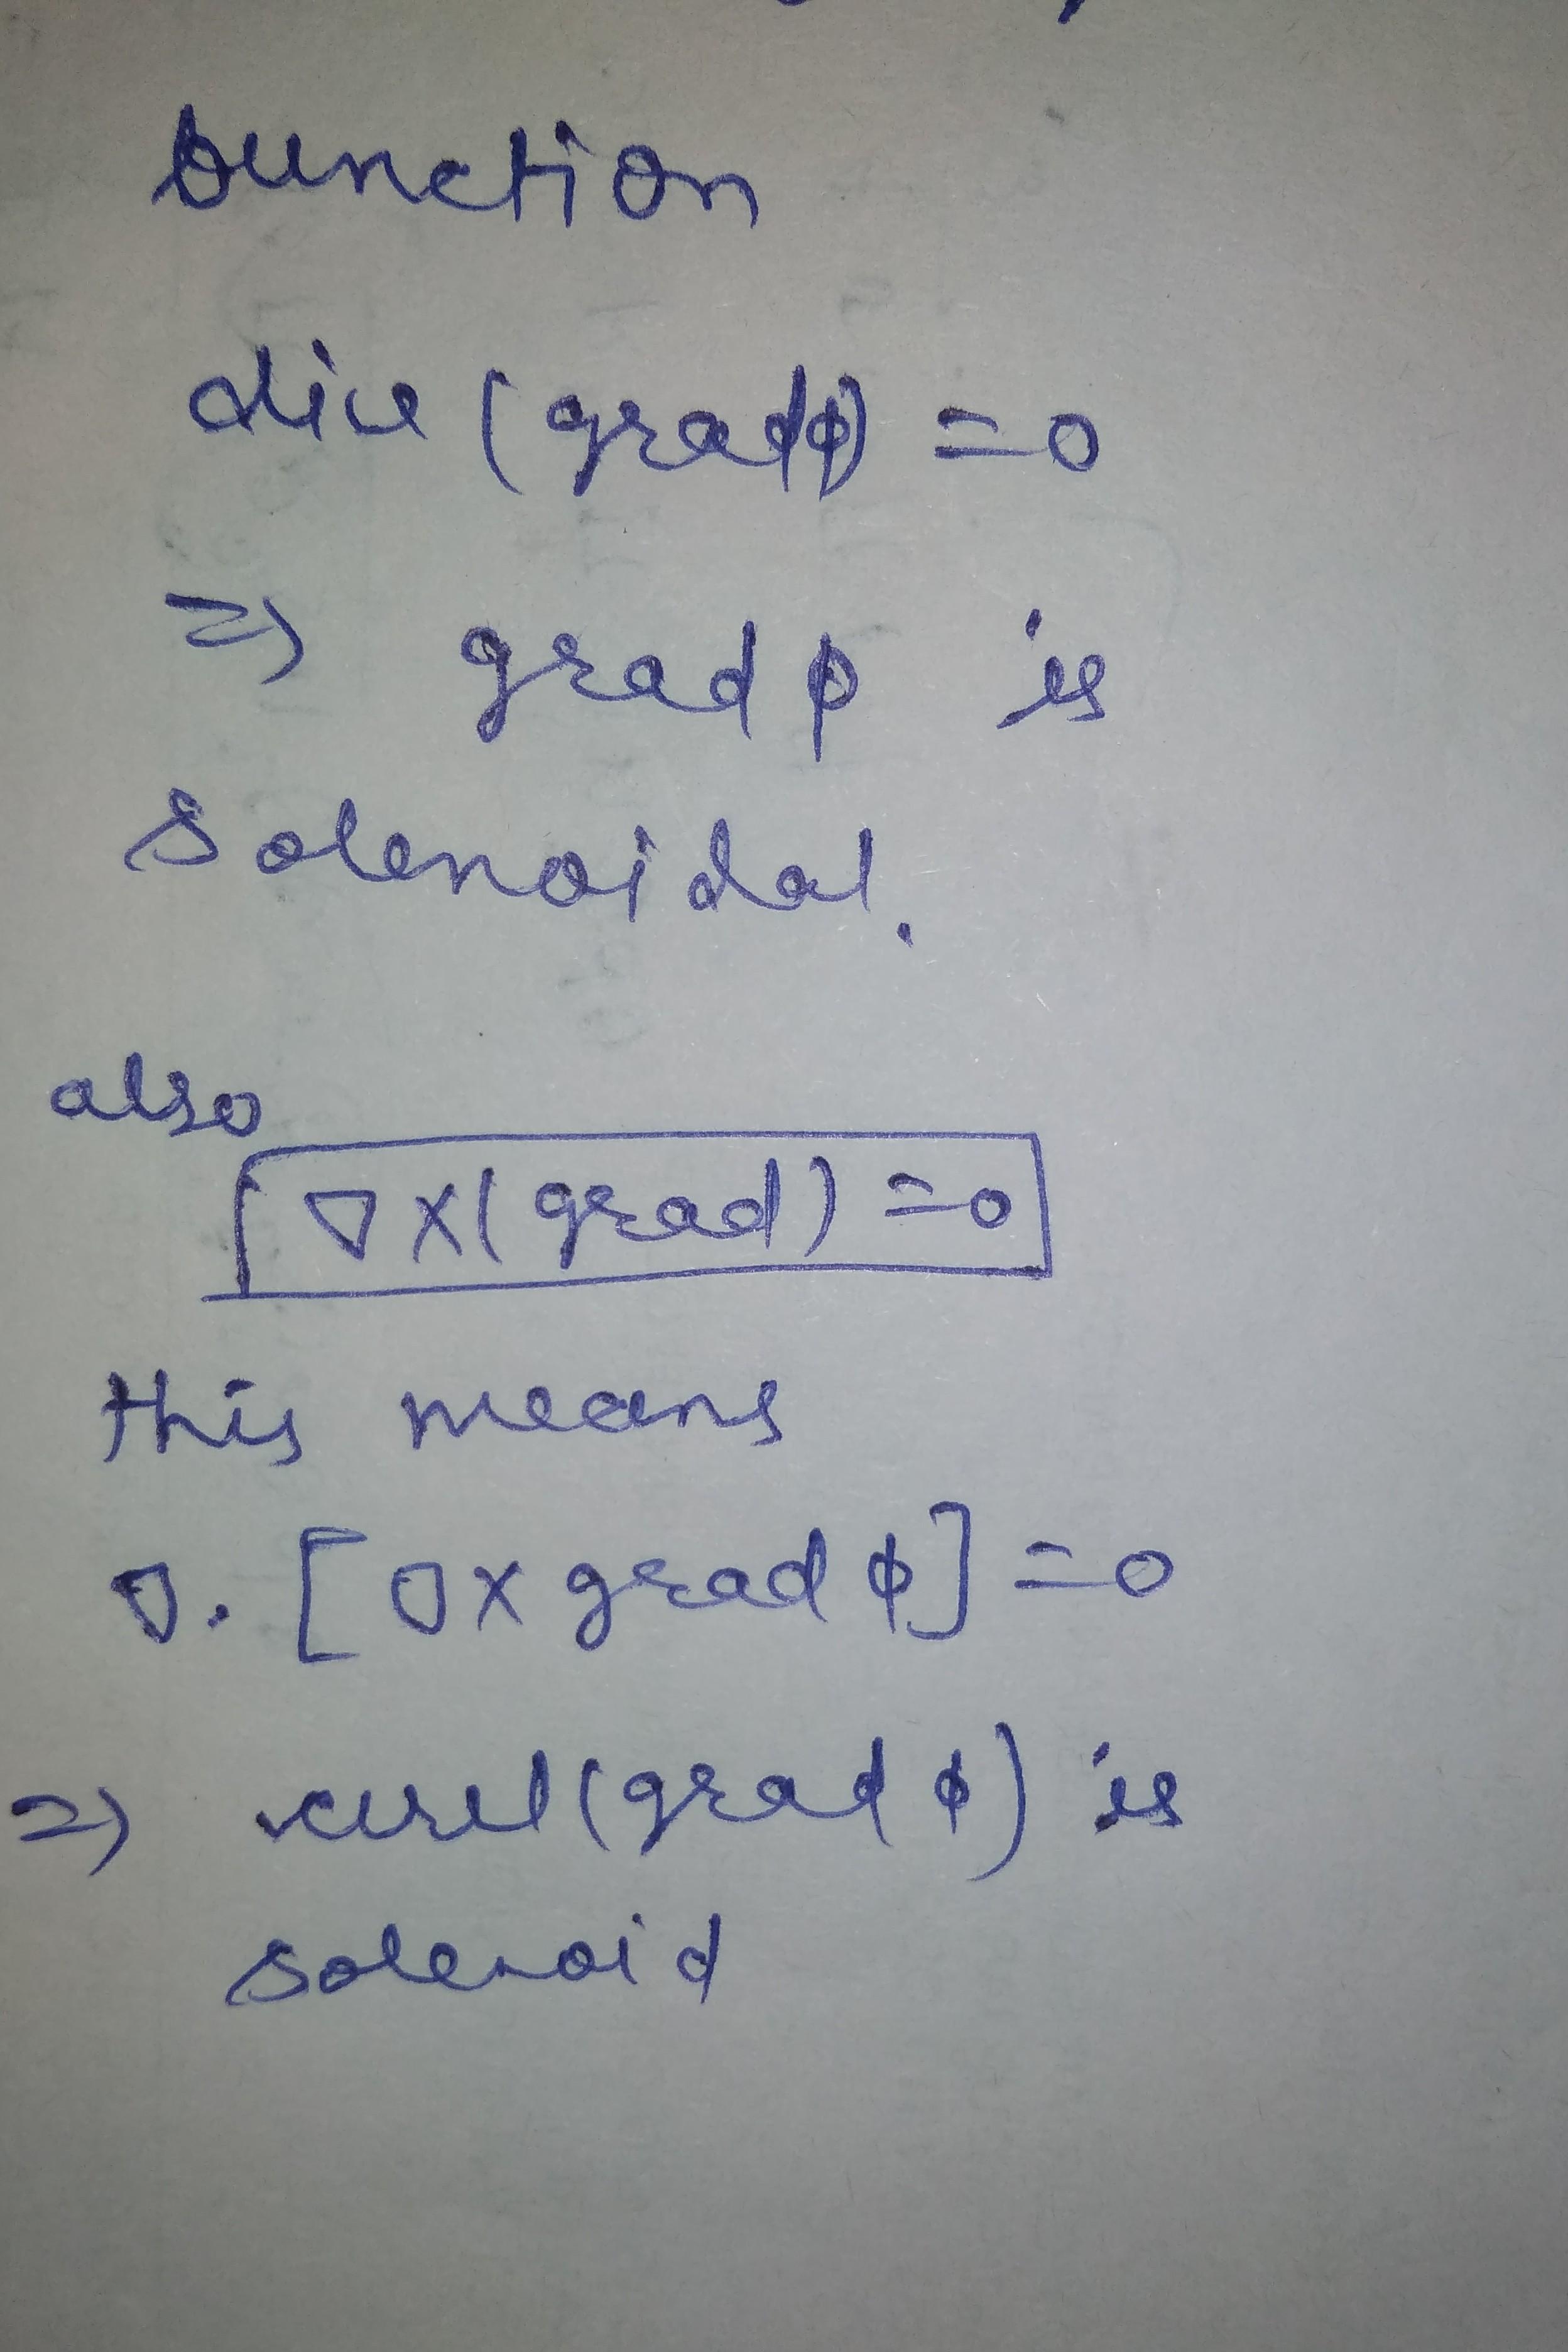 function
div (grad ϕ) =0
=> grad ϕ is
solenoidal.
also
∇ x (grad) =0
this means
∇. [∇x grad ϕ] =0
=> curl (grad ϕ) is
solenoid